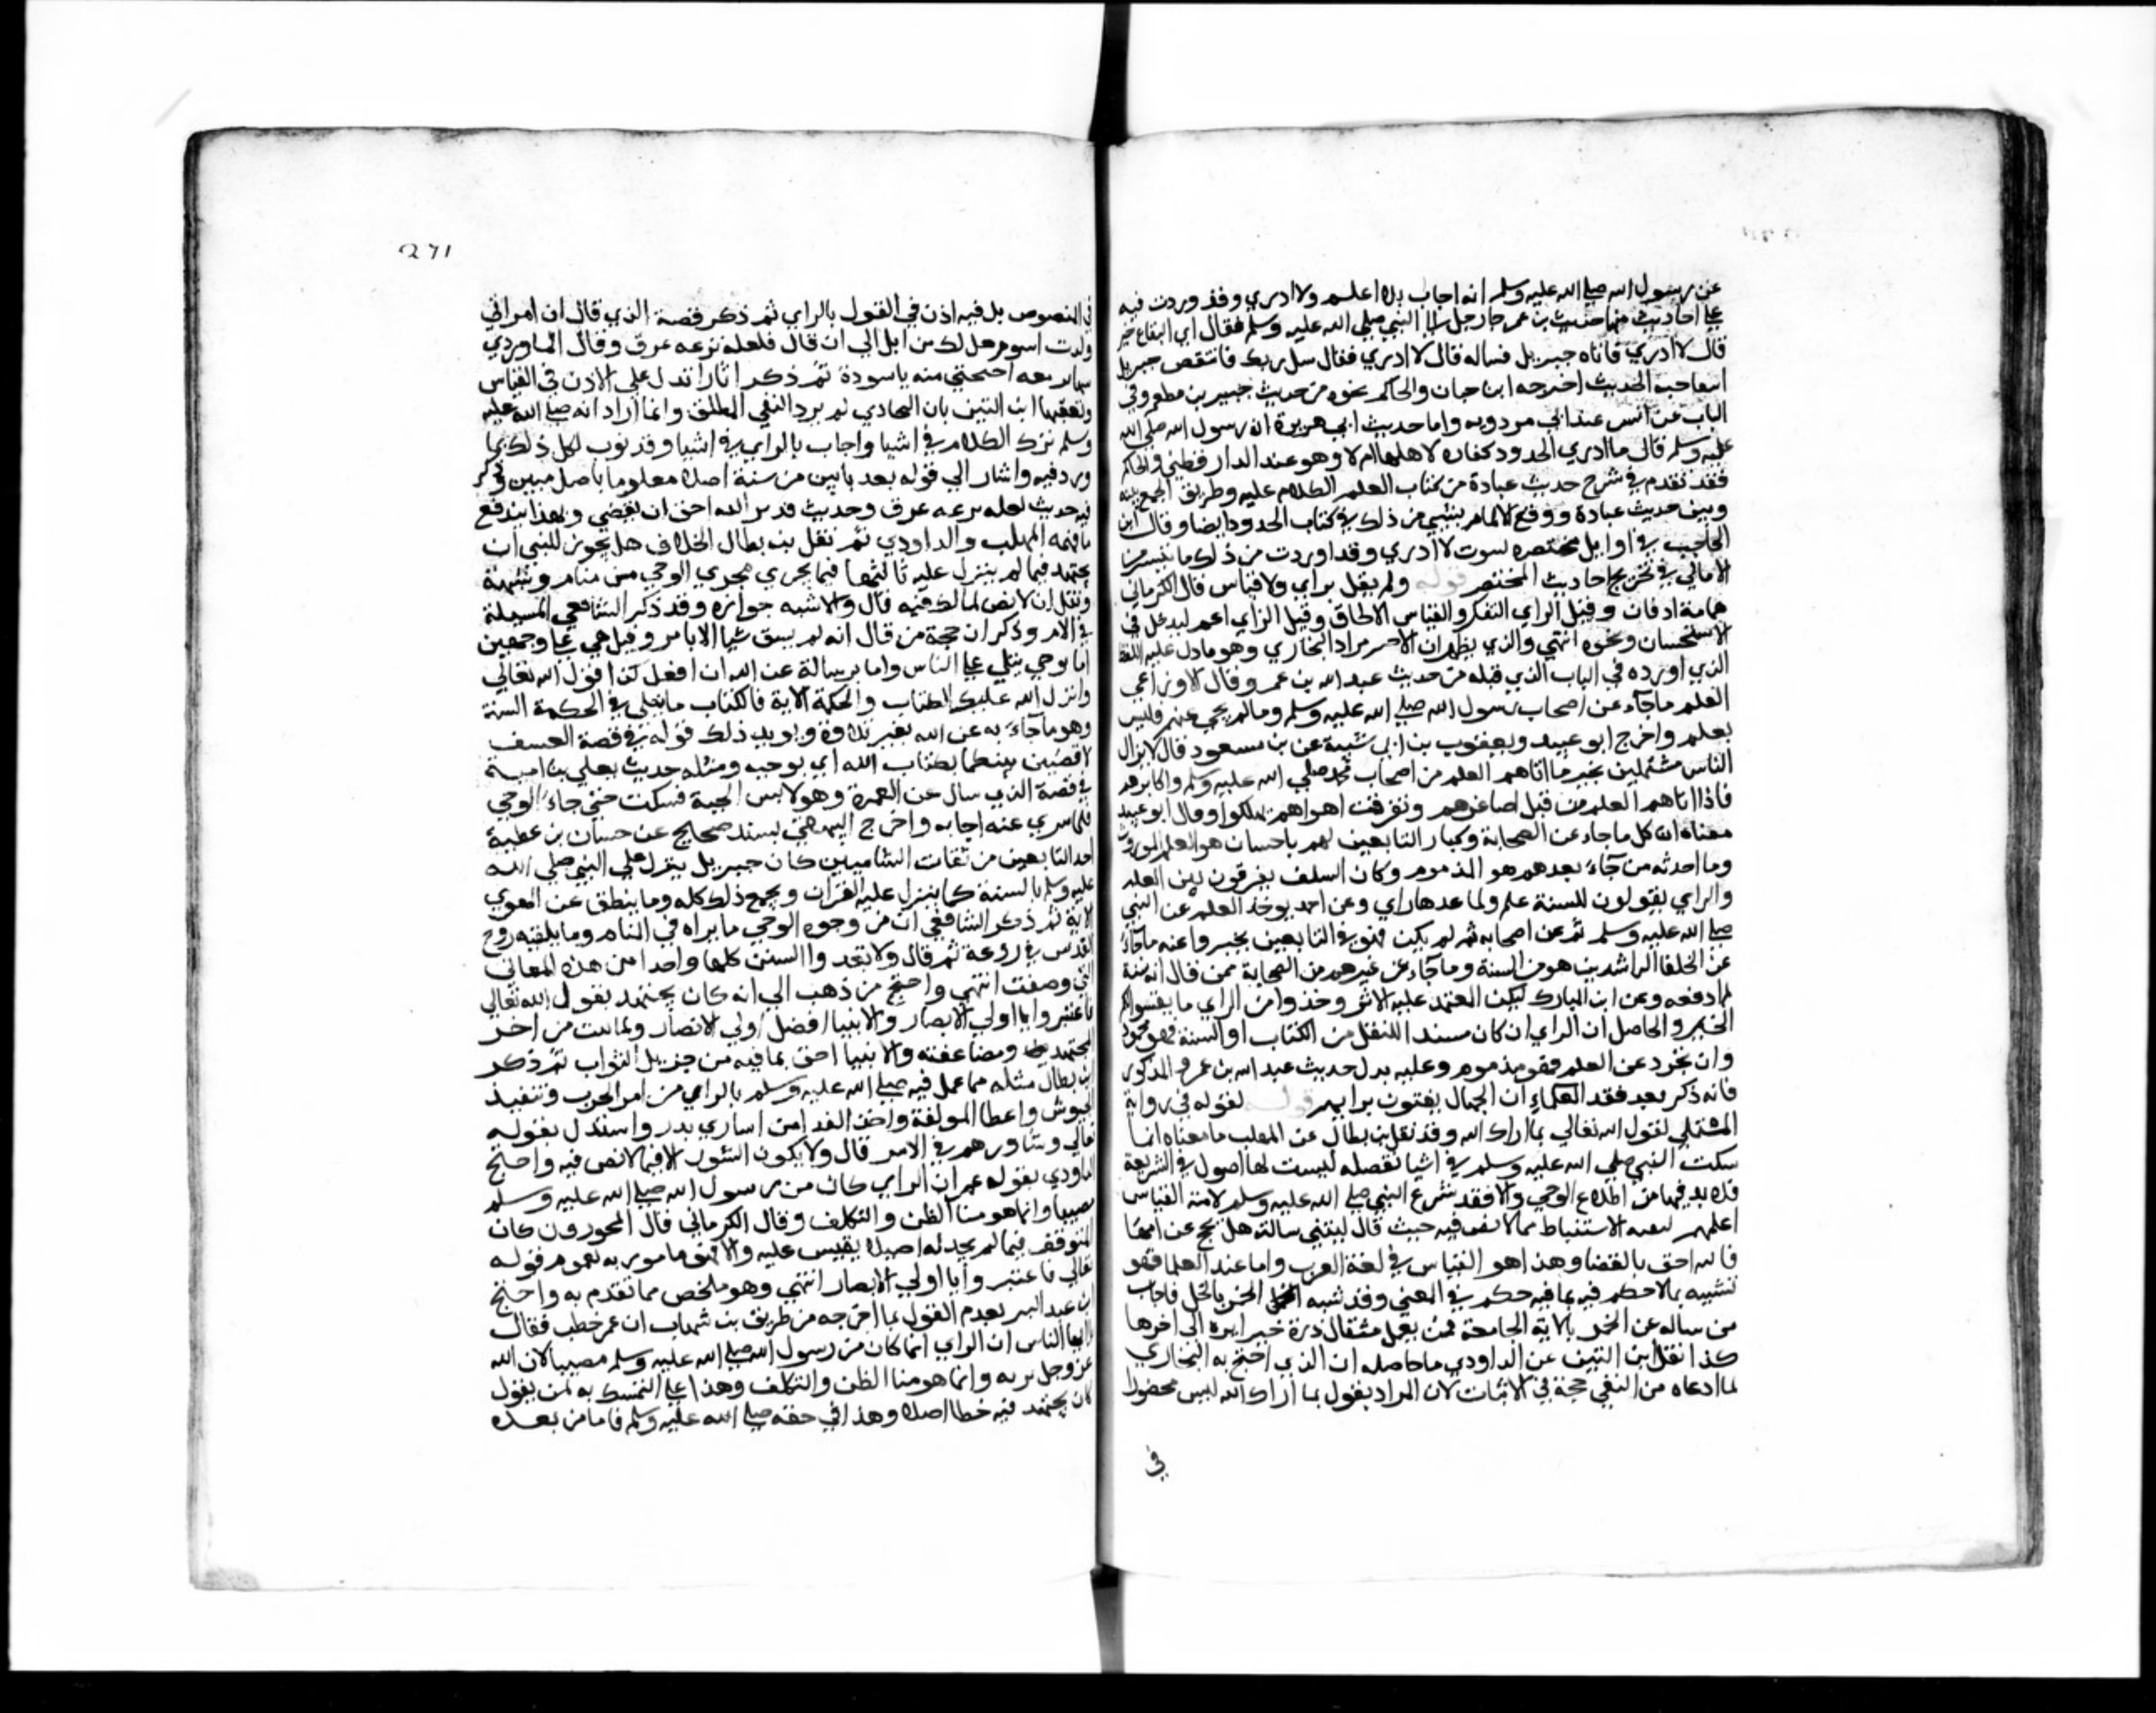 عن رسول الله صلى الله عليه وسلم انه اجاب بلا اعلم ولا ادري وقد وردت فيه
على احاديث منها حديث بن عمر جا رجل الى النبي صلى الله عليه وسلم فقال اي البقاع خير
قال لا ادري فاتاه جبريل فساله قال لا ادري فقال سل ربك فانتقص جبريل
انتقاصه الحديث اخرجه ابن حبان والحاكم نحوه من حديث جبير بن مطعم وفي
الباب عن انس عند ابي مردويه واما حديث ابي هريرة ان رسول الله صلى الله
عليه وسلم قال ما ادري الحدود كفاره لاهلها ام لا وهو عند الدارقطني والحاكم
فقد تقدم في شرح حديث عبادة من كتاب العلم الكلام عليه وطريق الجمع بينه
وبين حديث عبادة ووقع الالمام بشي من ذلك في كتاب الحدود ايضا وقال ابن
الحاجب في اوايل مختصره لسوت لا ادري وقد اوردت من ذلك ما تيسر من
الامالي في تخريج احاديث المختصر قوله ولم يقل براي ولا قياس قال الكرماني
هما مترادفان وقيل الراي التفكر والقياس الالحاق وقيل الراي اعم ليدخل في
الاستحسان ونحوه انتهي والذي يظهر ان الاخير مراد البخاري وهو ما دل عليه اللفظ
الذي اورده في الباب الذي قبله من حديث عبد الله بن عمر وقال الاوزاعي
العلم ما جاء عن اصحاب رسول الله صلى الله عليه وسلم وما لم يجي عنهم فليس
بعلم واخرج ابو عبيد ويعقوب بن ابي شيبة عن بن مسعود قال لا يزال
الناس مشتملين بخير ما اتاهم العلم من اصحاب محمد صلي الله عليه وسلم واكابرهم
فاذا اتاهم العلم من قبل اصاغرهم وتفرقت اهواهم هلكوا وقال ابو عبيد
معناه ان كل ما جاء عن الصحابة وكبار التابعين لهم باحسان هو العلم الموروث
وما احدثه من جاء بعدهم هو المذموم وكان السلف يفرقون بين العلم
والراي يقولون للسنة علم ولما عداها راي وعن احمد يوخذ العلم عن النبي
صلى الله عليه وسلم ثم عن اصحابه ثم لم يكن فهو في التابعين يخير وا عنه ما جاء
عن الخلفا الراشدين هو من السنة وما جاء عن غيرهم من الصحابة ممن قال انه سنة
لم ادفعه وعن ابن المبارك ليكن المعتمد عليه الاثر وخذوا من الراي ما يفسر لكم
الخبر والحاصل ان الراي ان كان مسندا للنقل من الكتاب او السنة فهو محمود
وان تجرد عن العلم فهو مذموم وعليه يدل حديث عبد الله بن عمرو المذكور
فانه ذكر بعد فقد العلماء ان الجهال يفتون برايهم قوله لقوله في رواية
المستملي لقول الله تعالي بما اراك الله وقد نقل بن بطال عن المهلب ما معناه انما
سكت النبي صلي الله عليه وسلم في اشيا معضله ليست لها اصول في الشريعة
فلا بد فيها من اطلاع الوحي والا فقد شرع النبي صلى الله عليه وسلم لامته القياس
اعلمهم كيفية الاستنباط مما لا نص فيه حيث قال ليتني سالته هل تحج عن امها
فالله احق بالقضا وهذا هو القياس في لغة العرب واما عند العلما فهو
تشبيه ما لا حكم فيه بما فيه حكم في المعني وقد شبه الحمر بالخيل فاجاب
من ساله عن الحمر بالاية الجامعة فمن يعمل مثقال ذرة خيرا يره الي اخرها
كذا نقل ابن التين عن الداودي ما حاصله ان الذي احتج به البخاري
لما ادعاه من النفي حجة في الاثبات لان المراد بقوله بما اراك الله ليس محصورا
في
271
في المنصوص بل فيه اذن في القول بالراي ثم ذكر قصة الذي قال ان امراتي
ولدت اسود هل لك من ابل الى ان قال فلعله نزعه عرق وقال الماوردي
احتجبي منه يا سودة ثم ذكر اثارا تدل على الاذن في القياس
وتعقبها ابن التين بان البخاري لم يرد النفي المطلق وانما اراد انه صلى الله عليه
وسلم ترك الكلام في اشيا واجاب بالراي في اشيا وقد بوب لكل ذلك بما
ورد فيه واشار الي قوله بعد بابين من سنة اصلا معلوما باصل مبين وذكر
فيه حديث لعله نزعه عرق وحديث فدين الله احق ان يقضي وبهذا يندفع
ما فهمه المهلب والداودي ثم نقل بن بطال الخلاف هل يجوز للنبي ان
يجتهد فيما لم ينزل عليه ثالثها فيما يجري مجري الوحي من منام وشبهه
ونقل ان لا نص لمالك فيه قال والاشبه جوازه وقد ذكر الشافعي المسيلة
في الام وذكر ان حجة من قال انه لم يسن شيا الا بامر وقيل هي على وجهين
اما بوحي يتلي على الناس واما برسالة عن الله ان افعل كذا قول الله تعالي
وانزل الله عليك الكتاب والحكمة الاية فالكتاب ما يتلي في الحكمة السنة
وهو ما جاء به عن الله بغير تلاوة ويويد ذلك قوله في قصة العسيف
لاقضين بينكما بكتاب الله اي بوحيه ومثله حديث يعلي بن امية
في قصة الذي سال عن العمرة وهو لابس الجبة فسكت حتي جاء الوحي
فلما سري عنه اجابه واخرج البيهقي بسند صحيح عن حسان بن عطية
احد التابعين من ثقات الشاميين كان جبريل ينزل على النبي صلي الله
عليه وسلم بالسنة كما ينزل عليه القران ويجمع ذلك كله وما ينطق عن الهوي
الاية ثم ذكر الشافعي ان من وجوه الوحي ما يراه في المنام وما يلقيه روح
القدس في روعه ثم قال ولا تعدوا السنن كلها واحدا من هذه المعاني
التي وصفت انتهي واحتج من ذهب الي انه كان يجتهد بقول الله تعالي
فاعتبروا يا اولي الابصار والانبيا افضل اولي الابصار ولما ثبت من اجر
المجتهد ومضاعفته والانبيا احق بما فيه من جزيل الثواب ثم ذكر
بن بطال مثله مما عمل فيه صلى الله عليه وسلم بالراي من امر الحرب وتنفيذ
الجيوش واعطا المولفة واخذ الفدا من اساري بدر واستدل بقوله
تعالي وشاورهم في الامر قال ولا يكون الشور الا فيما لا نص فيه واحتج
الداودي بقوله عمر ان الراي كان من رسول الله صلى الله عليه وسلم
مصيبا وانما هو منا الظن والتكلف وقال الكرماني قال المجوزون كان
التوقف فيما لم يجد له اصلا يقيس عليه والا فهو مامور به لعموم قوله
تعالي فاعتبروا يا اولي الابصار انتهي وهو ملخص مما تقدم به واحتج
ابن عبد البر لعدم القول بما اخرجه من طريق بن شهاب ان عمر خطب فقال
يا ايها الناس ان الراي انما كان من رسول الله صلى الله عليه وسلم مصيبا لان الله
عز وجل يريه وانما هو منا الظن والتكلف وهذا على التمسك به لمن يقول
كان يجتهد فيه خطا اصلا وهذا في حقه صلى الله عليه وسلم فاما من بعده